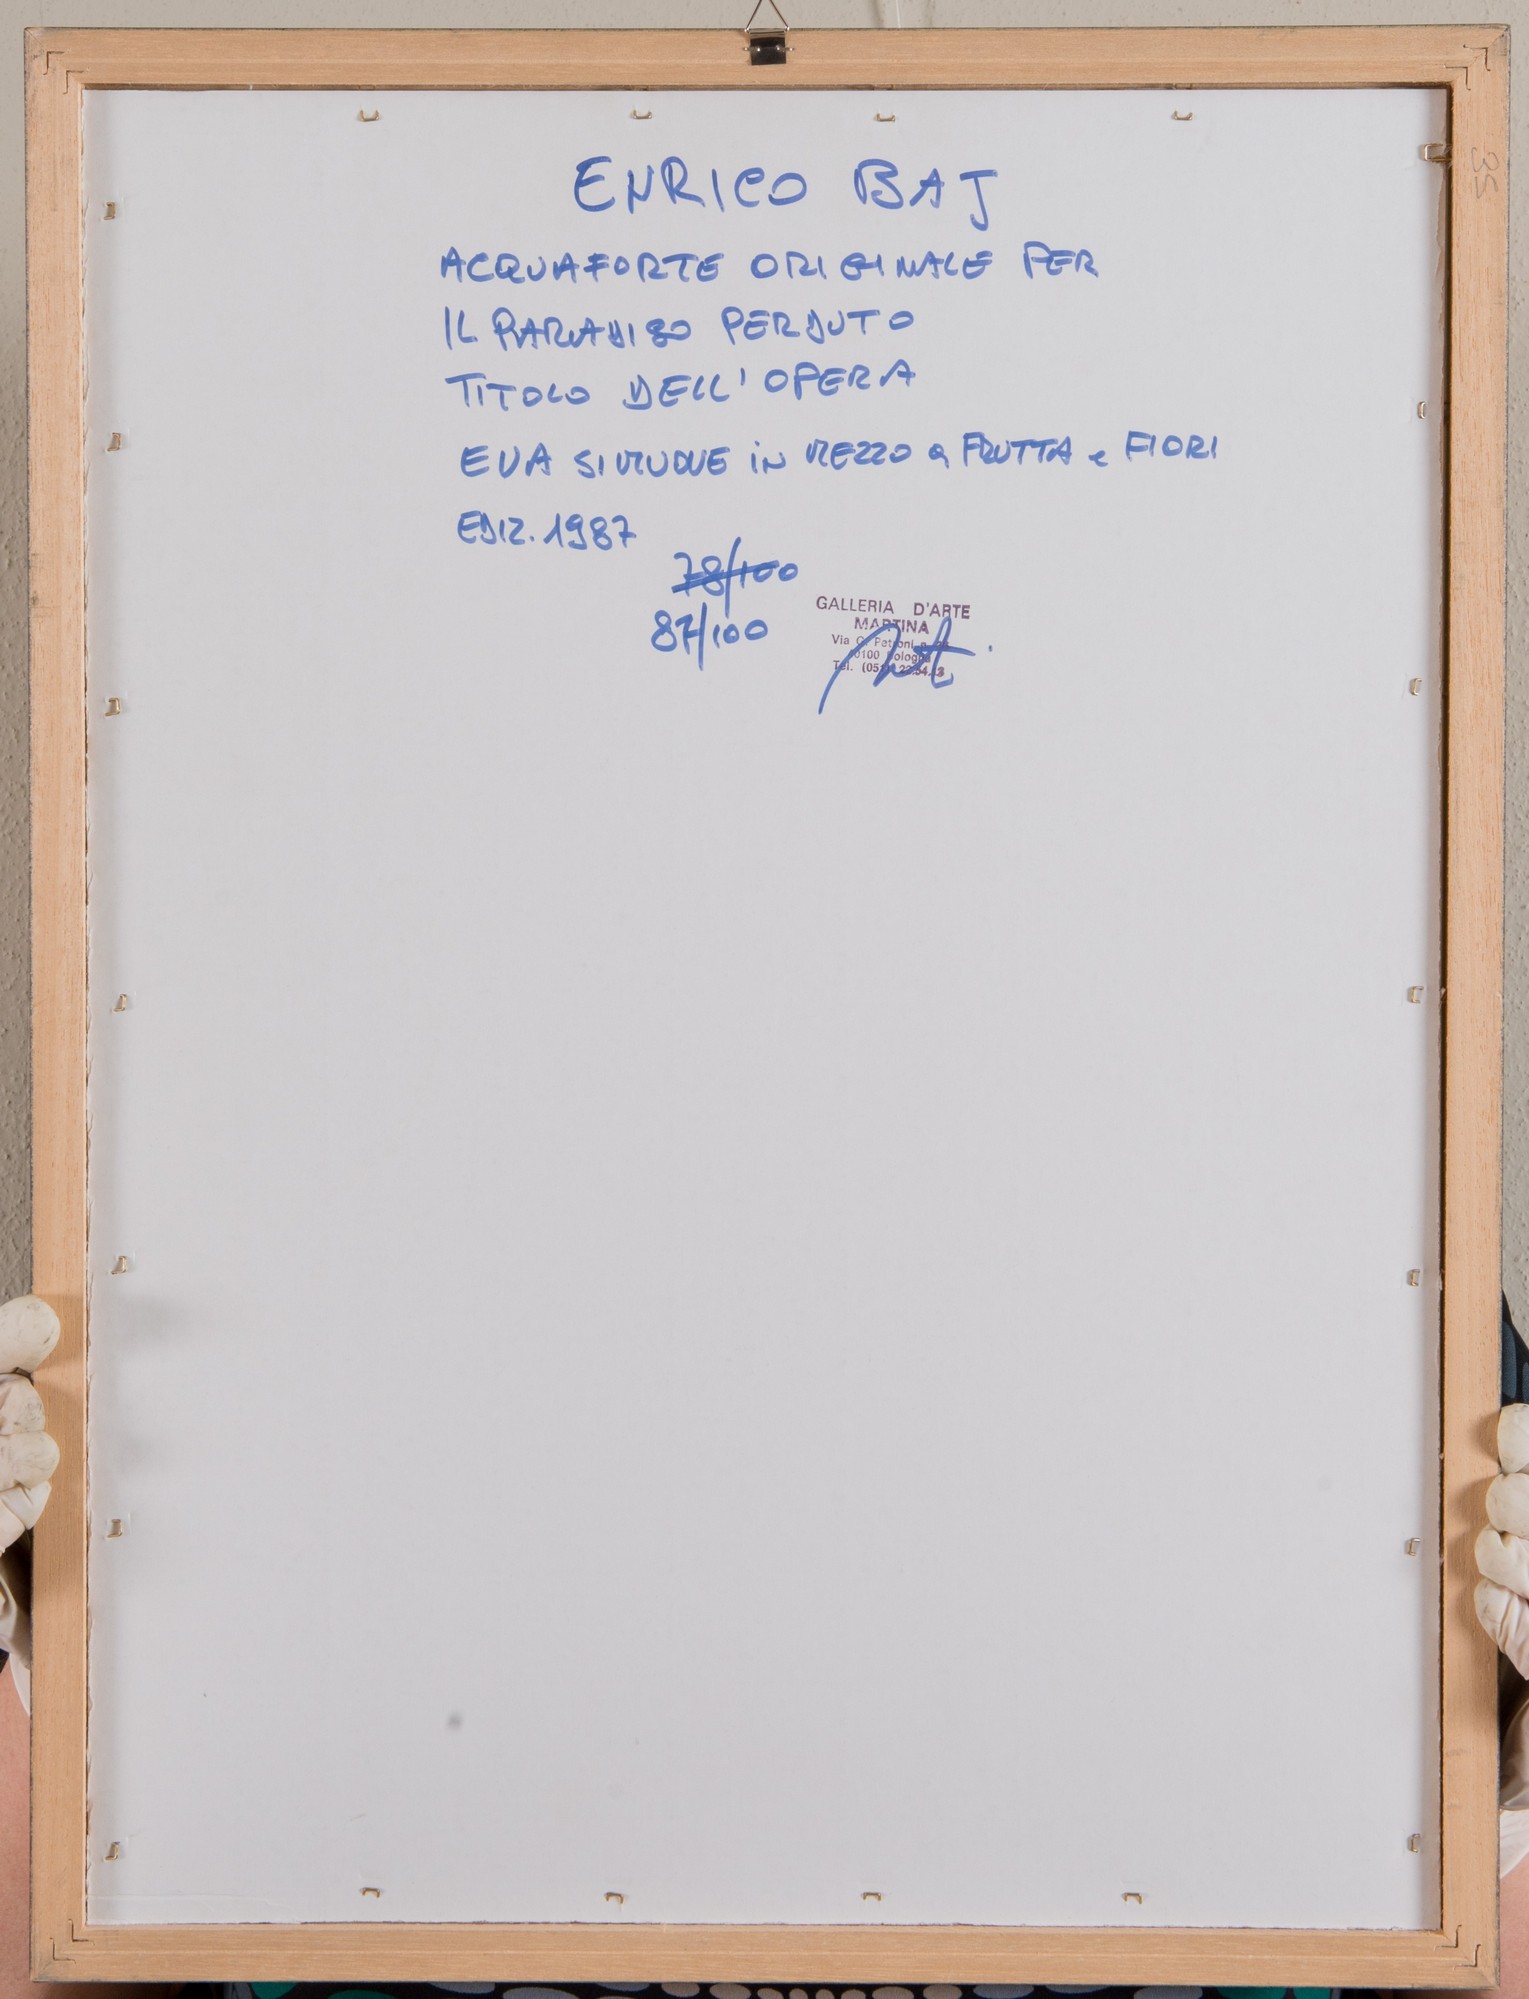 ENRICO BAJ
ACQUAFORTE ORIGINALE PER
IL PARADISO PERDUTO
TITOLO DELL'OPERA
EVA SI MUOVE in MEZZO a FRUTTA e FIORI
EDIZ. 1987
78/100
87/100
GALLERIA D'ARTE
MARTINA
Via G. Petroni
Bologna
Tel.
35